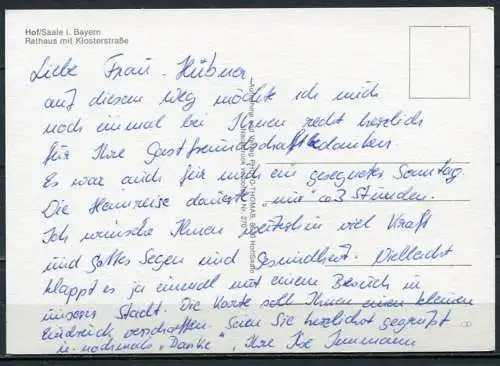 Hof/Saale i. Bayern
Rathaus mit Klosterstraße
Liebe Frau Hübner
auf diesem Weg möchte ich mich
noch einmal bei Ihnen recht herzlich
für Ihre Gastfreundschaft bedanken.
Es war auch für mich ein gesegneter Sonntag.
Die Heimreise dauerte "nur" 3 Stunden.
Ich wünsche Ihnen weiterhin viel Kraft
und Gottes Segen und Gesundheit. Vielleicht
klappt es ja einmal mit einem Besuch in
unserer Stadt. Die Karte soll Ihnen einen kleinen
Eindruck verschaffen. Seien Sie herzlichst gegrüßt
u. nochmals "Danke", Ihre